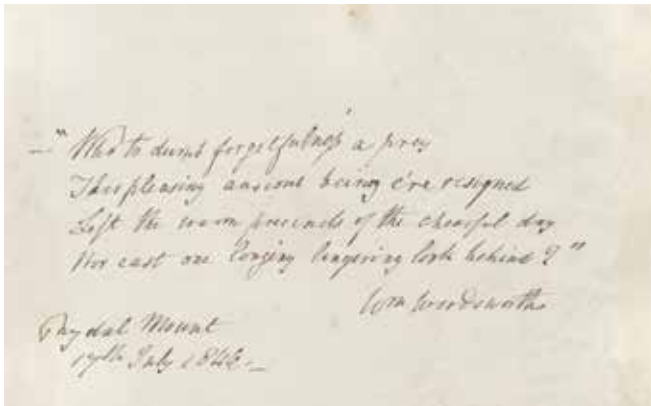 — "Who to dumb forgetfulness a prey
This pleasing anxious being e're resigned
Left the warm precincts of the chearful day
Nor cast one longing lingering look behind?"
Wm Wordsworth
Rydal Mount
July